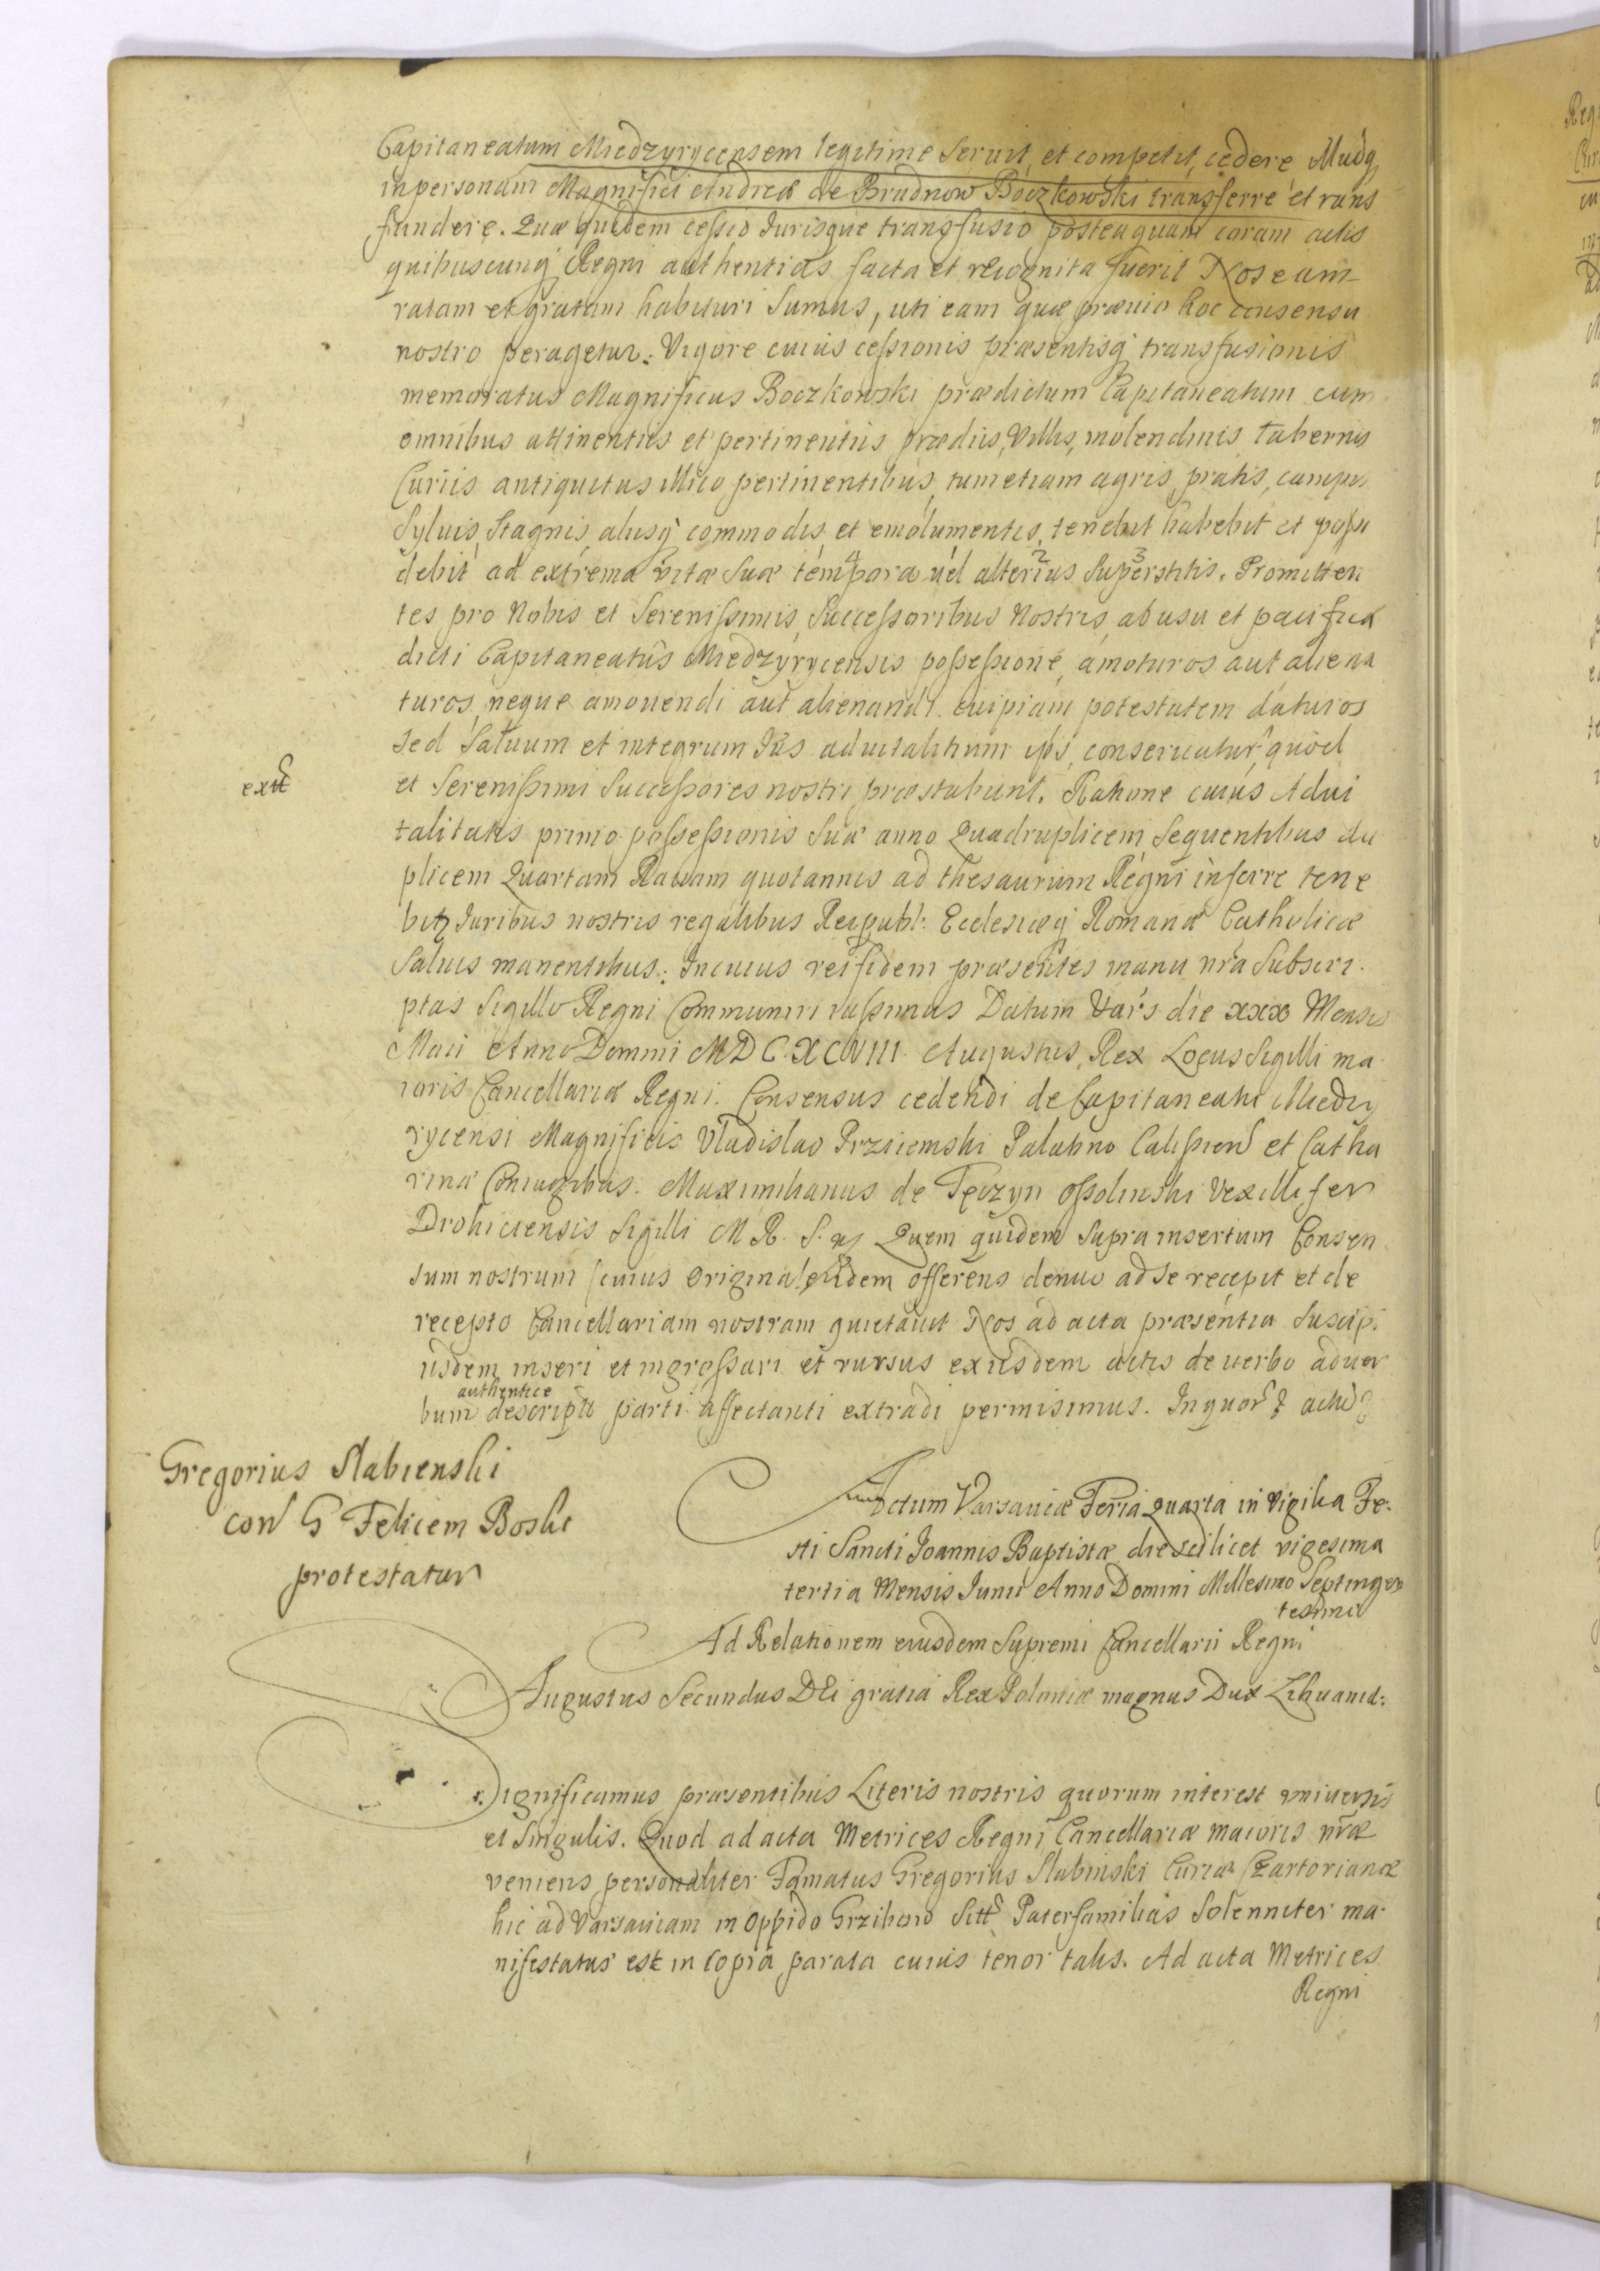 Capitaneatum Miedzyrycensem legitime seruit, et competit, cedere illudq
in personam Magnifici Andreæ de Brudnow Boczkowski transferre et trans
fundere. Quæ quidem cessio Jurisque transfusio posteaquam coram actis
quibuscunq Regni authenticis facta et recognita fuerit Nos eam
ratam et gratam habituri sumus, uti eam quæ præuio hoc consensu
nostro peragetur. Vigore cuius cessionis præsentisq transfusionis
memoratus Magnificus Boczkowski prædictum Capitaneatum cum
omnibus attinentiis et pertinentiis prædiis, Villis, molendinis tabernis
Curiis antiquitus illico pertinentibus, tum etiam agris pratis, campis
Syluis, Stagnis, aliisq commodis et emolumentis, tenebit habebit et possi
debit ad extrema vitæ suæ tempora uel alterius superstitis. Promitten
4 2 3
tes pro Nobis et Serenissimis Successoribus Nostris, ab usu et pacifica
dicti Capitaneatus Miedzyrycensis possessione, amoturos aut aliena
turos, neque amouendi aut alienandi cuipiam potestatem daturos
sed saluum et integrum Jus aduitalitium ipsi conseruatur, quod
et Serenissimi Successores nostri præstabunt. Ratione cuius Adui
talitatis primo possessionis suæ anno Quadruplicem sequentibus du
plicem Quartam Rauam quotannis ad thesaurum Regni inferre tene
bitz Juribus nostris regalibus Reipubl: Ecclesiæq Romanæ Catholicæ
saluis manentibus. In cuius rei fidem præsentes manu nra subscri
ptas Sigillo Regni Communiri iussimus Datum Vars die xxx Mensis
Maii Anno Domini MDCXCVIII. Augustus Rex Locus Sigilli ma
ioris Cancellariæ Regni. Consensus cedendi de Capitaneatu Miedzy
rycensi Magnificis Vladislao Przyiemski Palatino Calissien et Catha
rinæ Coniugibus. Maximilianus de Tęczyn Ossolinski Vexillifer
Drohiciensis Sigilli M R. S. Quem quidem supra insertum Consen
sum nostrum (cuius Original idem offerens denuo ad se recepit et de
recepto Cancellariam nostram quietauit Nos ad acta præsentia suscipi
iisdem inseri et ingrossari et rursus ex iisdem actis de uerbo ad uer
authentice
bum descripti parti affectanti extradi permisimus. In quor
exte
Gregorius Slabienski
con G Felicem Boski
protestatur
Actum Varsauiæ Feria quarta in Vigilia Fe
sti Sancti Joannis Baptistæ die scilicet vigesima
tertia Mensis Junii Anno Domini Millesimo Septingen
tesimo
Ad Relationem eiusdem Supremi Cancellarii Regni
Augustus Secundus DEi gratia Rex Poloniæ magnus Dux Lithuaniæ:
Significamus præsentibus Literis nostris quorum interest vniuersis
et singulis. Quod ad acta Metrices Regni Cancellariæ maioris nræ
veniens personaliter Famatus Gregorius Slabinski Curiæ Czartorianæ
hic ad Varsauiam in oppido Grzibow Sitt Paterfamilias Solenniter ma
nifestatus est in copia parata cuius tenor talis. Ad acta Metrices
Regni